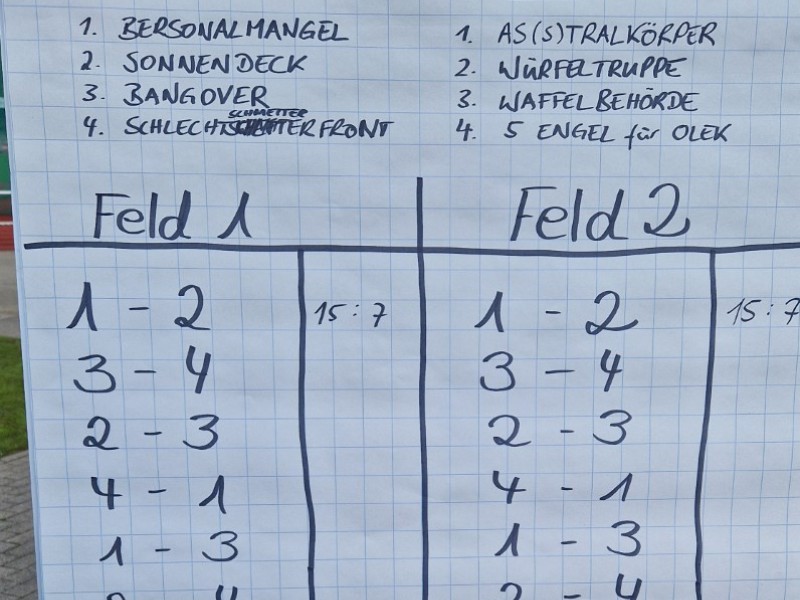 1. BERSONALMANGEL
2. SONNENDECK
3. BANGOVER
4. SCHLECHTSCHMETTERFRONT
1. AS(S)TRALKÖRPER
2. WÜRFELTRUPPE
3. WAFFELBEHÖRDE
4. 5 ENGEL für OLEK
Feld 1
1 - 2 15:7
3 - 4
2 - 3
4 - 1
1 - 3
2 - 4
Feld 2
1 - 2 15:7
3 - 4
2 - 3
4 - 1
1 - 3
2 - 4